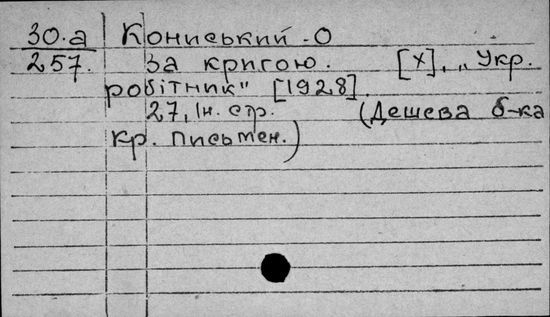 30.а Кониський.О
257. За кригою. [Х], „Укр.
робітник" [1928].
27, Ін. стр. (Дешева б-ка
кр. письмен.)